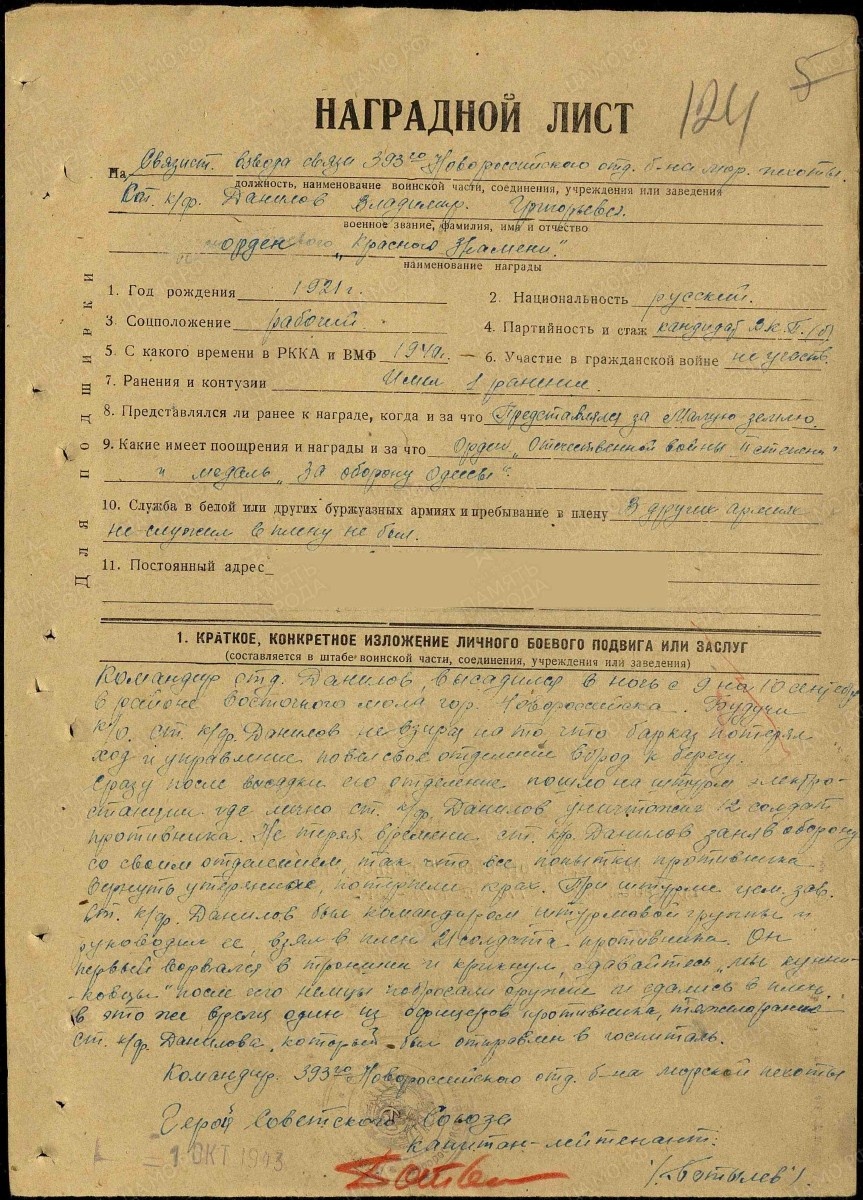 124 5
НАГРАДНОЙ ЛИСТ
На Связист взвода связи 393го Новороссийского отд. б-на мор. пехоты.
должность, наименование воинской части, соединения, учреждения или заведения
Ст. к/ф. Данилов Владимир Григорьевич.
военное звание, фамилия, имя и отчество
орден „Красного Знамени".
наименование награды
1. Год рождения 1921 г. 2. Национальность русский.
3. Соцположение рабочий 4. Партийность и стаж кандидат ВКП(б)
5. С какого времени в РККА и ВМФ 1940г. 6. Участие в гражданской войне не участв.
7. Ранения и контузии Имел 1 ранение.
8. Представлялся ли ранее к награде, когда и за что Представлялся за Малую землю.
9. Какие имеет поощрения и награды и за что Орден „Отечественной войны II степени"
и медаль „За оборону Одессы".
10. Служба в белой или других буржуазных армиях и пребывание в плену В других армиях
не служил в плену не был.
11. Постоянный адрес
Для подшивки
1. КРАТКОЕ, КОНКРЕТНОЕ ИЗЛОЖЕНИЕ ЛИЧНОГО БОЕВОГО ПОДВИГА ИЛИ ЗАСЛУГ
(составляется в штабе воинской части, соединения, учреждения или заведения)
Командир отд. Данилов, высадился в ночь с 9 на 10 сентября
в районе Восточного мола гор. Новороссийска. Будучи
к/о. ст. к/ф. Данилов не взирая на то, что баркас потерял
ход и управление повел свое отделение вброд к берегу.
Сразу после высадки его отделение пошло на штурм электро-
станции где лично ст. к/ф. Данилов уничтожил 12 солдат
противника. Не теряя времени ст. к/ф. Данилов занял оборону
со своим отделением, так что все попытки противника
вернуть утерянное, потерпели крах. При штурме цем. зав.
ст. к/ф. Данилов был командиром штурмовой группы и
руководил ее, взял в плен 21 солдата противника. Он
первый ворвался в траншеи и крикнул, сдавайтесь „мы кунни-
-ковцы" после его немцы побросали оружие и сдались в плен,
в это же время один из офицеров противника, тяжело ранил
ст. к/ф. Данилова, который был отправлен в госпиталь.
Командир. 393го Новороссийского отд. б-на морской пехоты
Герой Советского Союза
капитан-лейтенант:
/Ботылев/.
1 ОКТ 1943